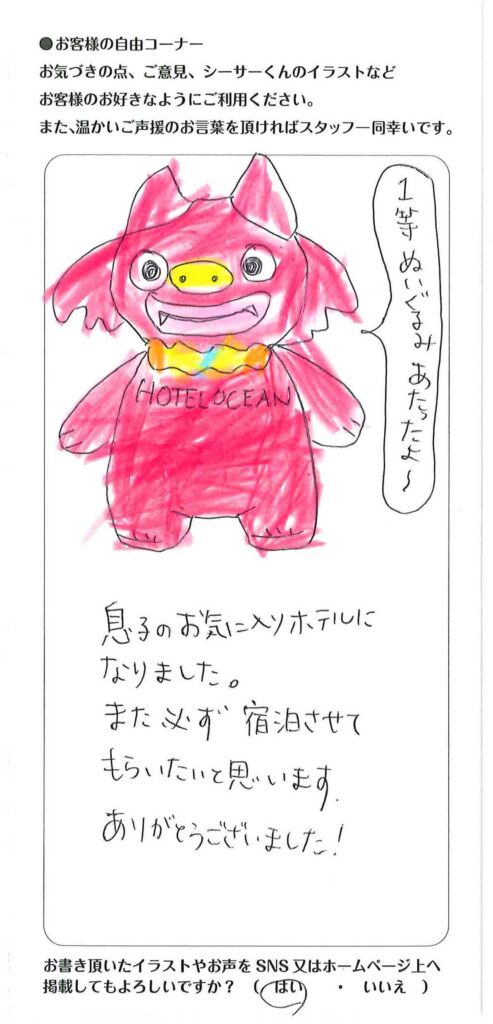 ●お客様の自由コーナー
お気づきの点、ご意見、シーサーくんのイラストなど
お客様のお好きなようにご利用ください。
また、温かいご声援のお言葉を頂ければスタッフ一同幸いです。
1等 ぬいぐるみ あたったよ〜
HOTEL OCEAN
息子のお気に入りホテルに
なりました。
また 必ず 宿泊させて
もらいたいと思います.
ありがとうございました!
お書き頂いたイラストやお声を SNS 又はホームページ上へ
掲載してもよろしいですか? ( はい ・ いいえ )